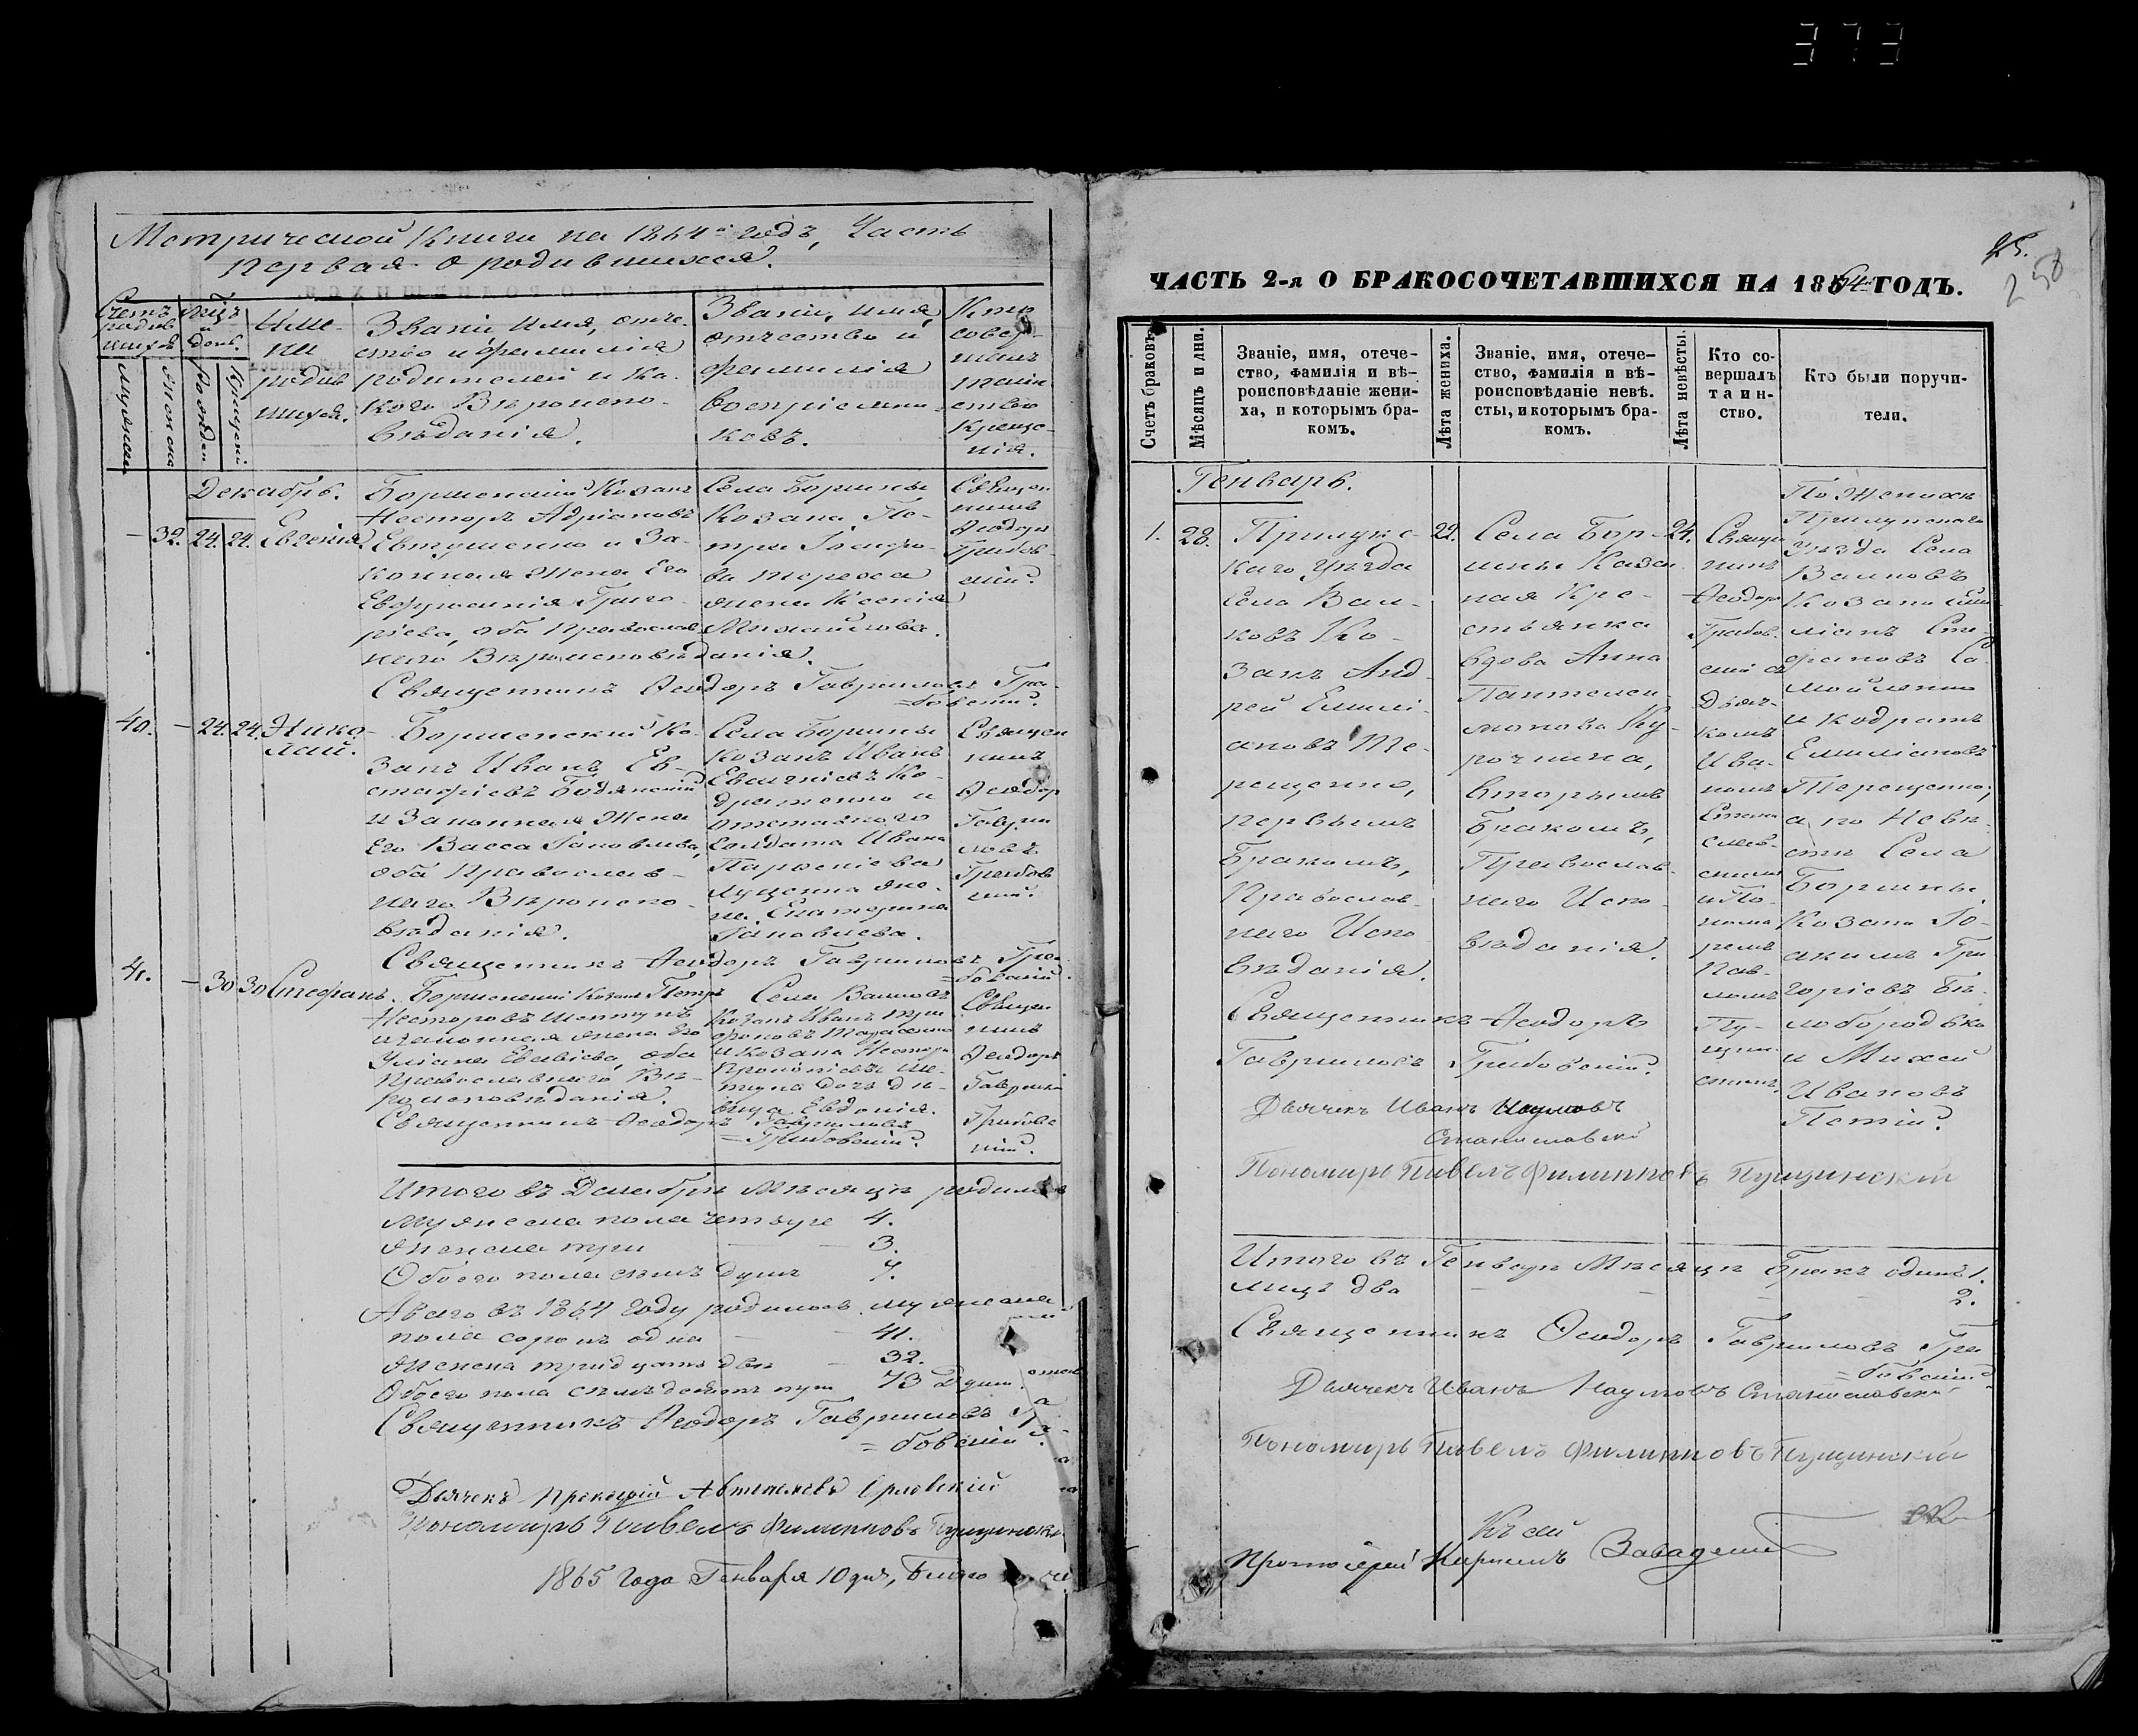 373
Метрической Книги на 1864й годъ, Часть
первая о родившихся.
Счетъ родившихся
Мѣсяцъ и день.
Мужеска
Женска
Рожден
Крещенія
Име-
на
родив
шихся.
Званіе, имя, отче-
ство и фамилія
родителей и ка-
кого Вѣроиспо-
вѣданія.
Званіе, имя,
отчество и
фамилія
воспріемни-
ковъ.
Кто
совер-
шалъ
таин
ство
креще-
нія.
Декабрь.
– 32. 24. 24. Евгенія
Борженскій Козакъ
Несторъ Адріановъ
Евтушенко и За-
конная жена Его
Евфросинія Григо-
ріева, оба Православ
наго Вѣроисповѣданія.
Села Боршны
Козака Пе-
тра
жена Ксенія
Михайлова.
Священ
никъ
Ѳеодоръ
Грабов-
скій.
Священникъ Ѳеодоръ Гавриловъ Гра-
=бовскій.
40. – 24. 24. Нико-
лай.
Борженскій Ко-
закъ Иванъ Ев-
стафіевъ Бодянскій
и Законная Жена
Его Васса Іаковлева,
оба Православ-
наго Вѣроиспо-
вѣданія.
Села Боршны
Козакъ Иванъ
Ко-
дратенко и
отставного
Солдата Ивана
Парфеніева
Луценка же-
на Екатерина
Іаковлева.
Священ
никъ
Ѳеодор
Гаври
ловъ
Грабов
скій.
Священникъ Ѳеодоръ Гавриловъ Гра-
=бовскій.
41. – 30 30 Стефанъ.
Борженскій Козакъ Петръ
Несторовъ Шептунъ
и законная жена Его
Уліана Евсевіева, оба
Православнаго Вѣ-
роисповѣданія.
Села Валковъ
Козакъ Иванъ Три
фоновъ
и Козака Нестора
Прокопіева Ше-
птуна дочь дѣ-
вица Евдокія.
Священ
никъ
Ѳеодоръ
Гаврило
Грабовс
кій.
Священникъ Ѳеодоръ Гавриловъ
=Грабовскій.
Итого въ Декабрѣ Мѣсяцѣ родилось
мужеска пола четыре 4.
женска три — — 3.
Обоего пола семь душъ 7.
А всего въ 1864 году родилось мужеска
пола сорокъ одна — — 41.
женска тридцать двѣ — 32.
Обоего пола семьдесятъ три 73 душъ.
Священникъ Ѳеодоръ Гавриловъ Гра-
=бовскій.
Дьячекъ Прокофій Орловскій
Пономарь Павелъ Филипповъ Пущинскі
1865 года Генваря 10 дня,
25.
250
ЧАСТЬ 2-я О БРАКОСОЧЕТАВШИХСЯ НА 1864 ГОДЪ.
Счетъ браковъ.
Мѣсяцъ и дни.
Званіе, имя, отече-
ство, фамилія и вѣ-
роисповѣданіе жени-
ха, и которымъ бра-
комъ.
Лѣта жениха.
Званіе, имя, отече-
ство, фамилія и вѣ-
роисповѣданіе невѣ-
сты, и которымъ бра-
комъ.
Лѣта невѣсты.
Кто со-
вершалъ
таин-
ство.
Кто были поручи-
тели.
Генварь.
1. 28.
Прилукс-
каго Уѣзда
Села Вал-
ковъ Ко-
закъ Анд-
рей Емилі-
ановъ Те-
рещенко,
первымъ
Бракомъ,
Православ-
наго Испо
вѣданія.
22.
Села Бор-
шны Казен
ная Кре-
стьянка
вдова Анна
Пантелеи-
монова Ку-
рочкина,
вторымъ
Бракомъ,
Православ-
наго Испо-
вѣданія.
24.
Священ
никъ
Ѳеодоръ
Грабов-
скій съ
Дьяч-
комъ
Ива-
номъ
Стани
слав-
скимъ
и По-
нома
ремъ
Пав-
ломъ
Пу-
щин-
скимъ.
По Женихѣ
Прилукскаго
Уѣзда Села
Валковъ
Козаки Еми-
ліанъ Сте-
фановъ Са-
мойленко
и Кодратъ
Емиліановъ
Терещенко,
а по Невѣ-
стѣ Села
Боршны
Козаки Іо-
акимъ Гри
горіевъ Бѣ-
лобородько
и Михей
Ивановъ
Священникъ Ѳеодоръ
Гавриловъ Грабовскій.
Дьячекъ Иванъ Наумовъ
Станиславскій
Пономарь Павелъ Филипповъ Пущинскій
Итого въ Генварѣ Мѣсяцѣ Бракъ одинъ 1.
лицъ два — — — 2.
Священникъ Ѳеодоръ Гавриловъ Гра
=бовскій.
Дьячекъ Иванъ Наумовъ Станиславскі
Пономарь Павелъ Филипповъ Пущинскій
Протоіерей Кириллъ Завадскій